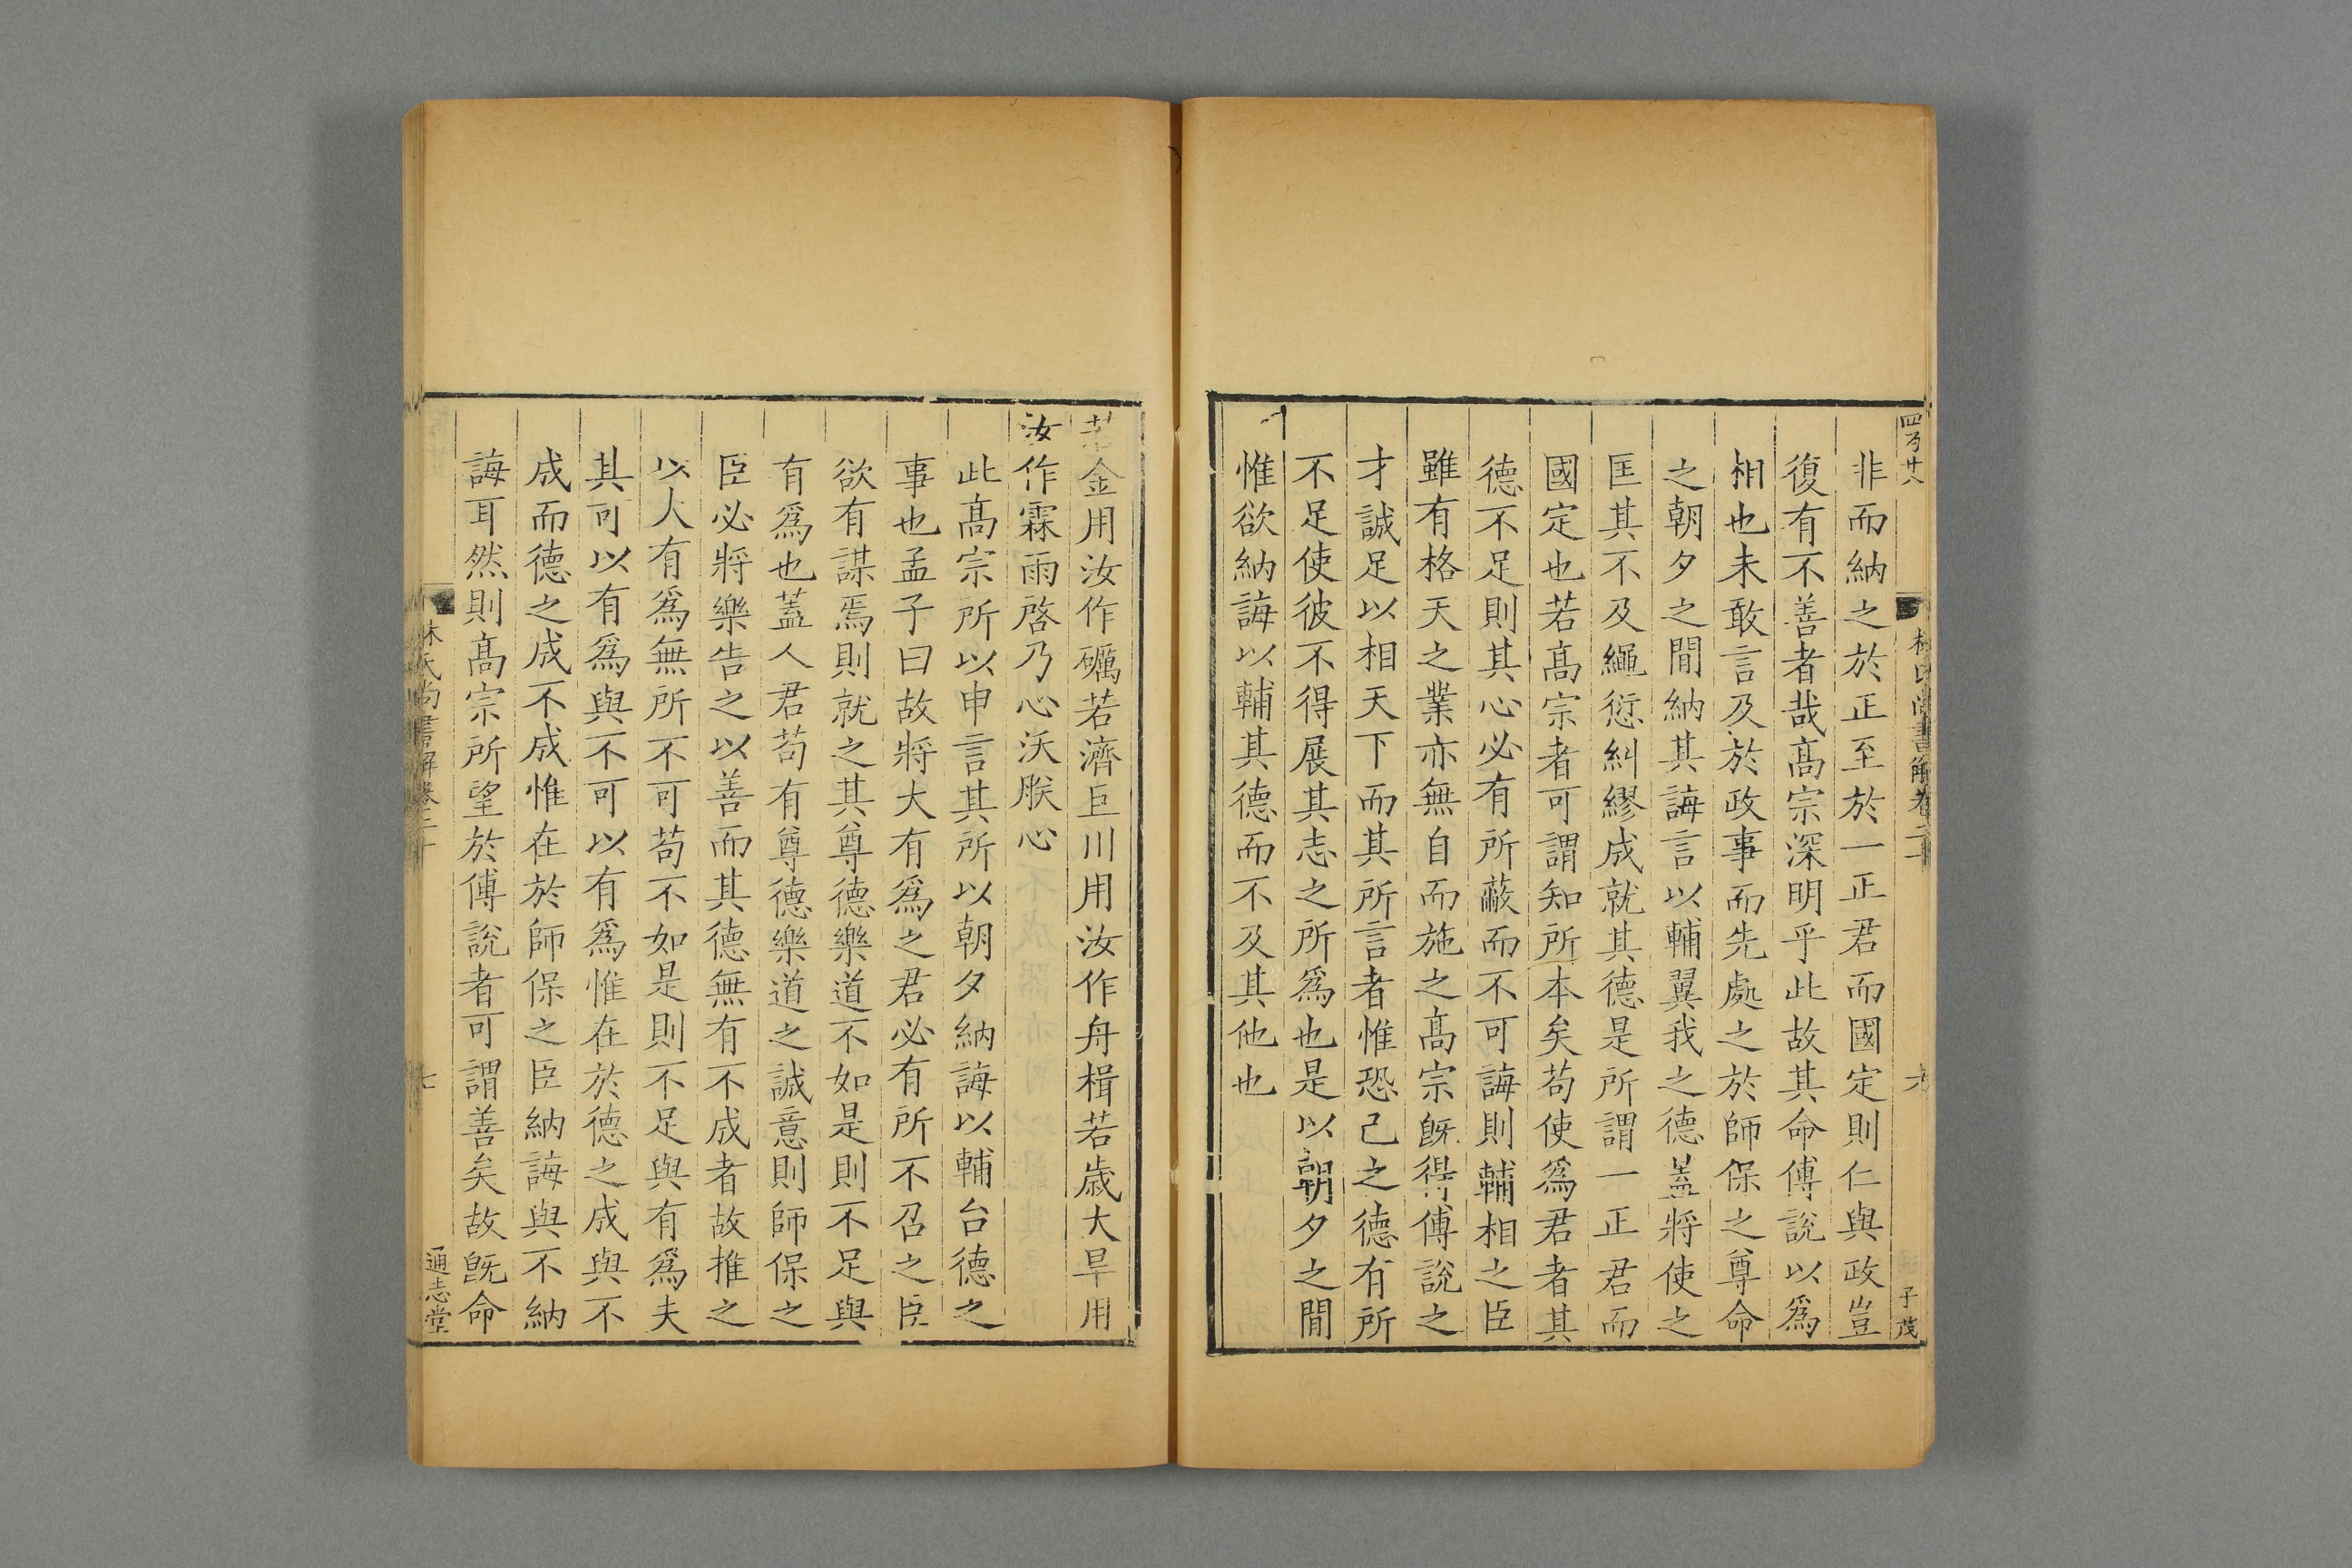 非而納之於正至於一正君而國定則仁與政豈
復有不善者哉髙宗深明乎此故其命傅說以爲
相也未敢言及於政事而先處之於師保之尊命
之朝夕之間納其誨言以輔翼我之德蓋將使之
匡其不及繩愆糾繆成就其德是所謂一正君而
國定也若髙宗者可謂知所本矣苟使爲君者其
德不足則其心必有所蔽而不可誨則輔相之臣
雖有格天之業亦無自而施之髙宗旣得傅說之
才誠足以相天下而其所言者惟恐己之德有所
不足使彼不得展其志之所爲也是以朝夕之間
惟欲納誨以輔其德而不及其他也
子茂
若金用汝作礪若濟巨川用汝作舟楫若歲大旱用
汝作霖雨啓乃心沃朕心
此髙宗所以申言其所以朝夕納誨以輔台德之
事也孟子曰故將大有爲之君必有所不召之臣
欲有謀焉則就之其尊德樂道不如是則不足與
有爲也蓋人君苟有尊德樂道之誠意則師保之
臣必將樂告之以善而其德無有不成者故推之
以人有爲無所不可苟不如是則不足與有爲夫
其可以有爲與不可以有爲惟在於德之成與不
成而德之成不成惟在於師保之臣納誨與不納
誨耳然則髙宗所望於傅說者可謂善矣故旣命
林氏尚書解卷二十
七
通志堂